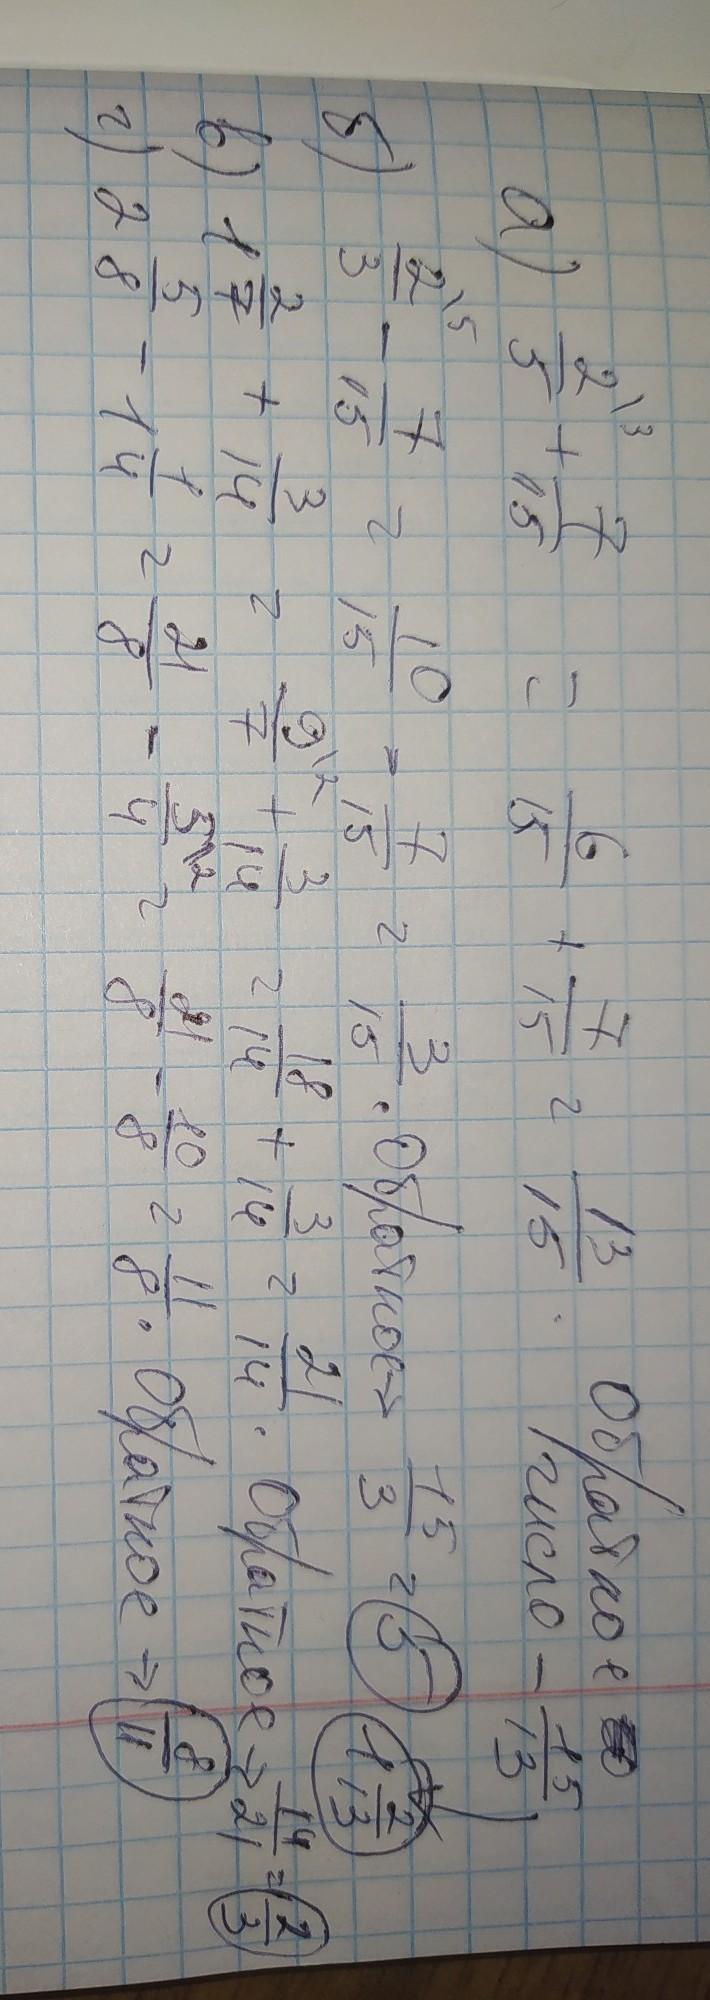 а) 2/5\3 + 7/15 = 6/15 + 7/15 = 13/15. Обратное
число - 15/13
1 2/13
б) 2/3\5 - 7/15 = 10/15 - 7/15 = 3/15. Обратное → 15/3 = 5
в) 1 2/7 + 3/14 = 9/7\2 + 3/14 = 18/14 + 3/14 = 21/14. Обратное → 14/21 = 2/3
г) 2 5/8 - 1 1/4 = 21/8 - 5/4\2 = 21/8 - 10/8 = 11/8. Обратное → 8/11